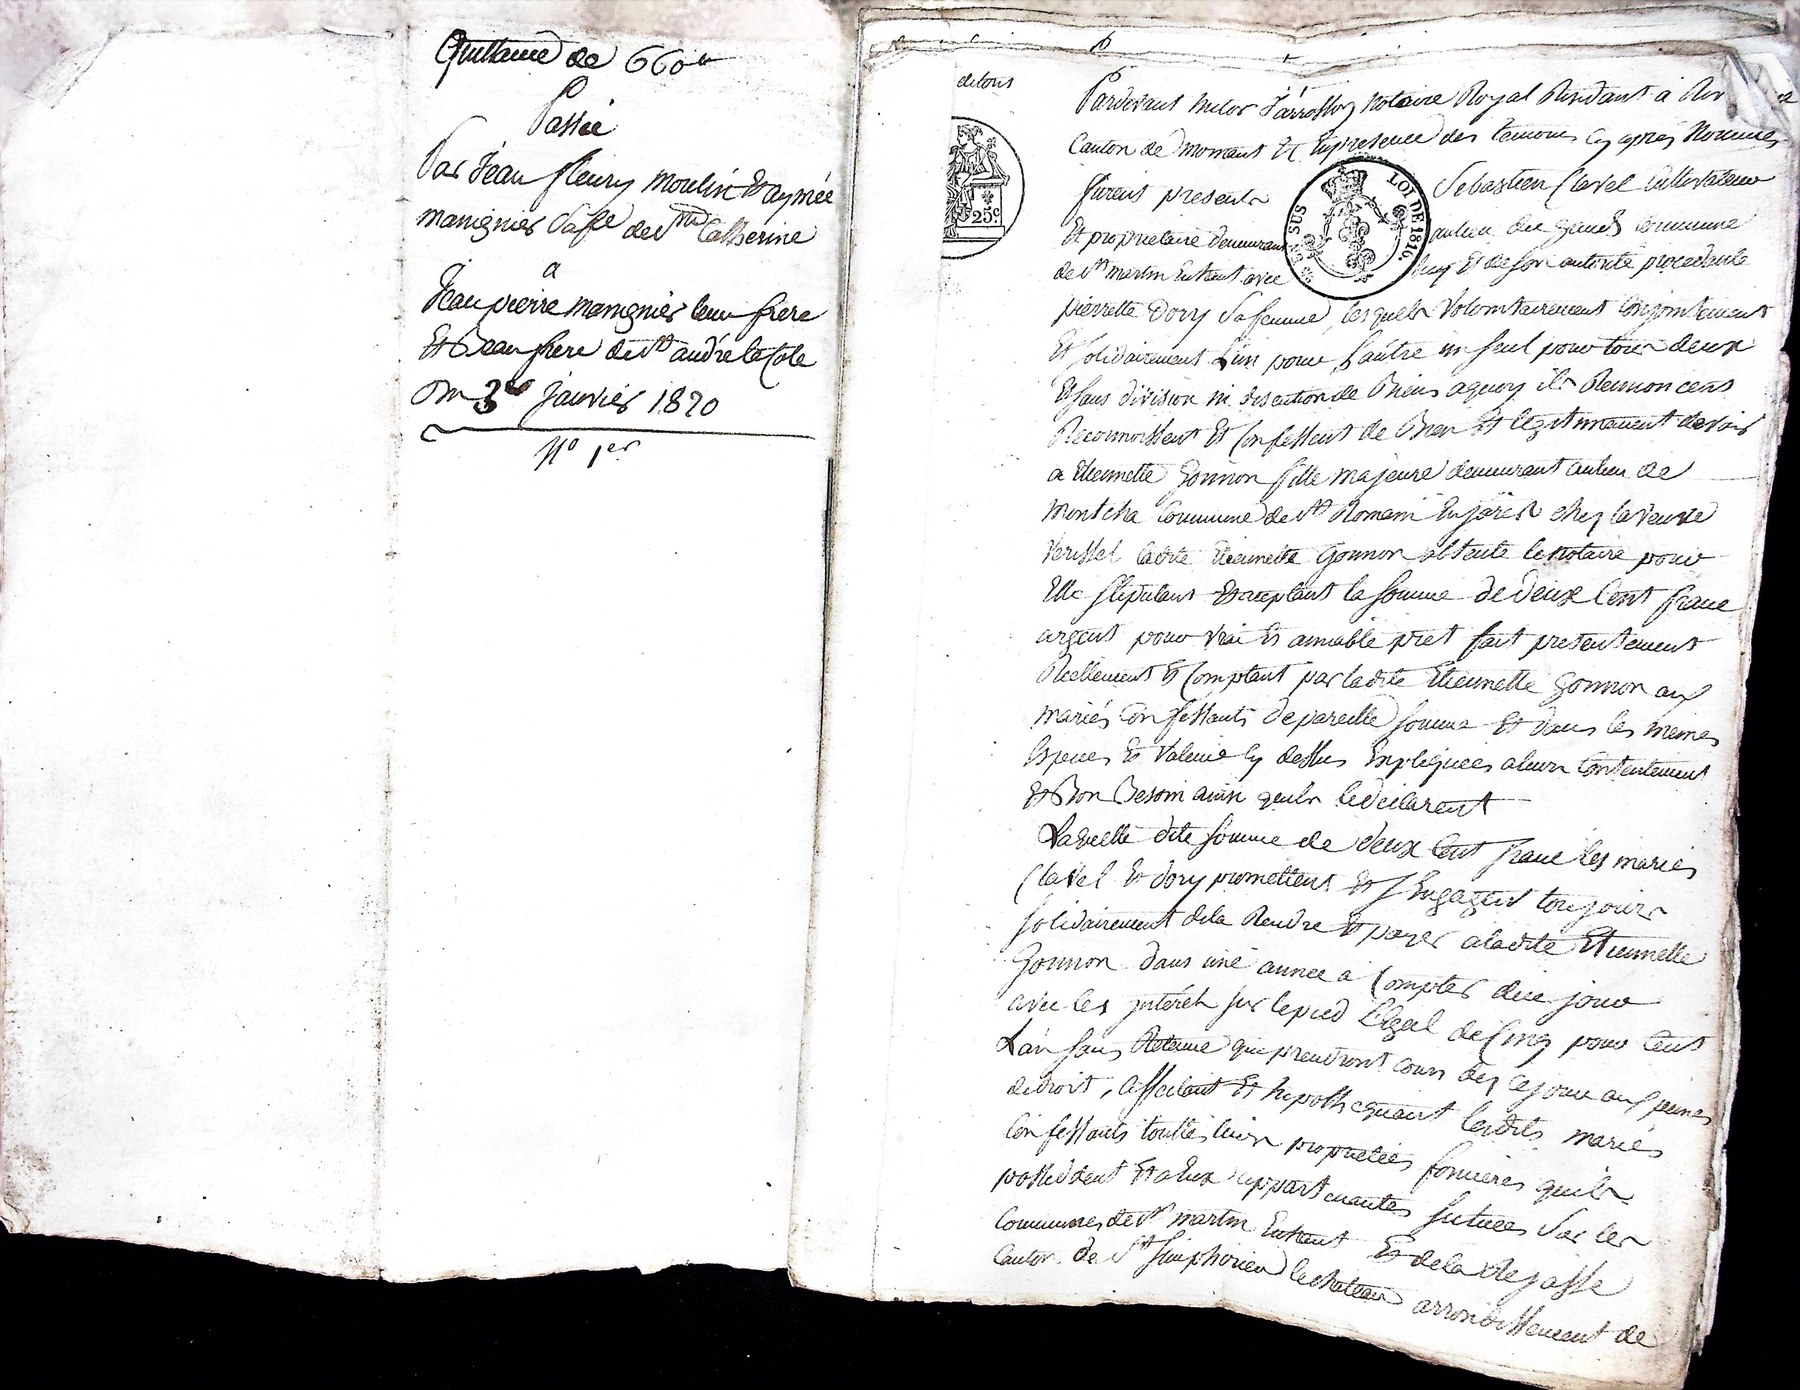 Quittance de 660 tt
Passée
Par Jean fleury moulin Et aymée
manignier Sa fe de St Catherine
a
Jean pierre manignier leur frere
Et Beau frere de St andré la Cote
Du 3 janvier 1820
No 1er
de tous
Pardevant notaire Royal Residant à Riv
Canton de mornant Et En presence des temoins cy apres Nommés
furent presents Sebastien Clavel Cultivateur
Et proprietaire demeurant au lieu du Commune
de St martin En haut avec Et de son autorité procedante
pierrette Dory Sa femme, lesquels Volontairement Conjointement
Et Solidairement L'un pour L'autre un Seul pour tous deux
Et sans division ni discution de Biens a quoy ils Renoncent
Reconnoissent Et Confessent de Bien Et légitimement devoir
a Etiennette Gonnon fille majeure demeurant au lieu de
Montcha Commune de St Romain En jarest chez la veuve
ladite Etiennette Gonnon absente le notaire pour
Elle Stipulant Et acceptant la somme de deux Cent franc
argent pour vrai Et amiable pret fait presentement
Reellement Et Comptant par ladite Etiennette Gonnon aux
mariés Confessants de pareille somme Et dans les memes
Especes Et Valeur cy dessus Expliquées a leur Contentement
Et Bon Besoin ainsi quils le déclarent
Laquelle dite somme de deux Cent franc les mariés
Clavel Et Dory promettent Et S'Engagent toujours
Solidairement de la Rendre Et payer a ladite Etiennette
Gonnon dans une année a Compter du jour
avec les jntérêts sur le pied Légal de Cinq pour Cent
L'an sans Retenue qui prendront cours dez ce jour aux peines
de droit, affectant Et hipothequant lesdits mariés
Confessants touttes leurs propriétées foncieres quils
possédent Et a Eux appartenantes scituées Sur les
Communes de St martin En haut Et de la Rejasse
Canton de St Simphorien le chateau arrondissement de
25c.
EN SUS
LOI DE 1816.